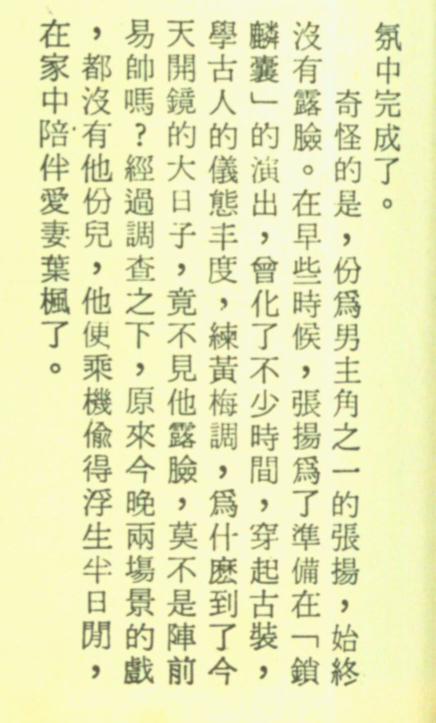 氛中完成了。
奇怪的是，份爲男主角之一的張揚，始終
沒有露臉。在早些時候，張揚爲了準備在「鎖
麟囊」的演出，曾化了不少時間，穿起古裝，
學古人的儀態丰度，練黃梅調，爲什麽到了今
天開鏡的大日子，竟不見他露臉，莫不是陣前
易帥嗎？經過調查之下，原來今晚兩場景的戲
，都沒有他份兒，他便乘機偸得浮生半日閒，
在家中陪伴愛妻葉楓了。